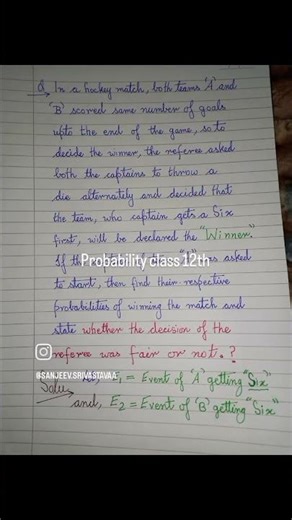 Q In a hockey match, both teams 'A' and
'B' scored same number of goals
upto the end of the game, so to
decide the winner, the referee asked
both the captains to throw a
die alternately and decided that
the team, who captain gets a Six
first, will be declared the "Winner."
Probability class 12th
If the asked
to start, then find their respective
probabilities of winning the match and
state whether the decision of the
referee was fair or not.?
@SANJEEV.SRIVASTAVAA
Solu E1 = Event of 'A' getting "Six"
and, E2 = Event of 'B' getting "Six"